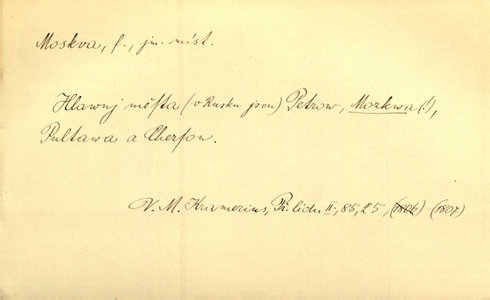 Moskva, f., jm. míst.
Hlawnj měſta (v Rusku jsou) Petrow, Mozkwa (!),
Pultawa a Cherſon.
V. M. Kramerius, Př. lidu II., 85, 25, (1806) (1807)